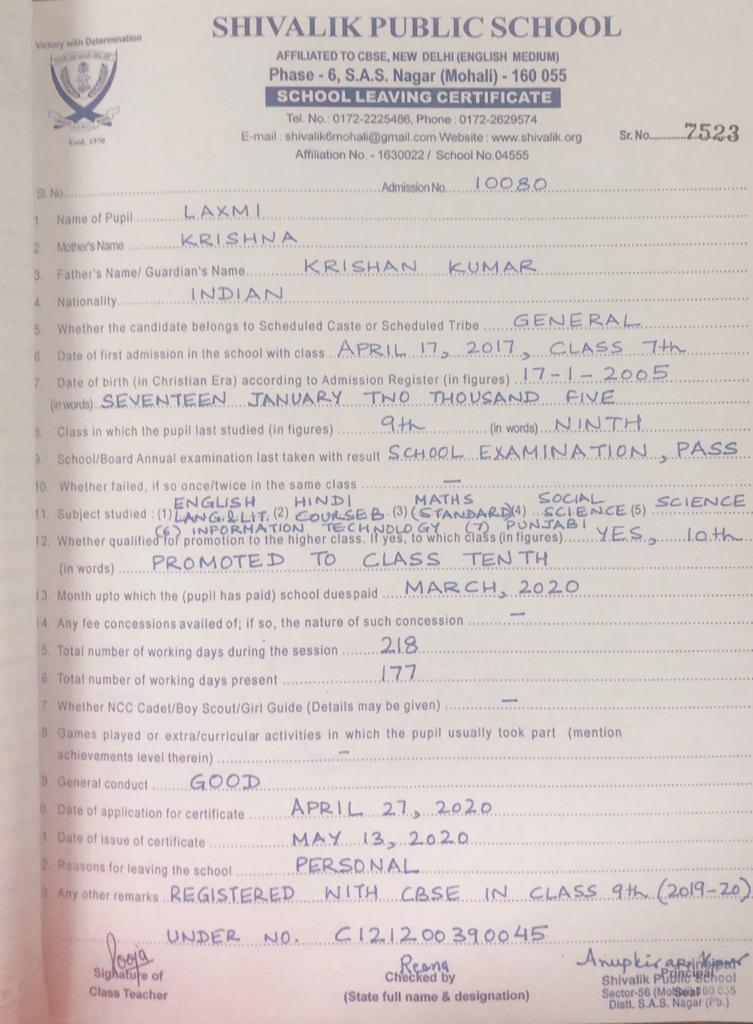 SHIVALIK PUBLIC SCHOOL
Victory with Determination
Estd. 1970
AFFILIATED TO CBSE, NEW DELHI (ENGLISH MEDIUM)
Phase - 6, S.A.S. Nagar (Mohali) - 160 055
SCHOOL LEAVING CERTIFICATE
Tel. No.: 0172-2225486, Phone : 0172-2629574
E-mail : shivalik6mohali@gmail.com Website : www.shivalik.org
Sr. No. 7523
Affiliation No. - 1630022 / School No.04555
Sl. No. Admission No. 10080
1. Name of Pupil LAXMI
2. Mother's Name KRISHNA
3. Father's Name/ Guardian's Name KRISHAN KUMAR
4. Nationality INDIAN
5. Whether the candidate belongs to Scheduled Caste or Scheduled Tribe GENERAL
6. Date of first admission in the school with class APRIL 17, 2017, CLASS 7th
7. Date of birth (in Christian Era) according to Admission Register (in figures) 17-1-2005
(in words) SEVENTEEN JANUARY TWO THOUSAND FIVE
8. Class in which the pupil last studied (in figures) 9th (in words) NINTH
9. School/Board Annual examination last taken with result SCHOOL EXAMINATION, PASS
10. Whether failed, if so once/twice in the same class —
ENGLISH HINDI MATHS SOCIAL SCIENCE
11. Subject studied : (1) LANG. & LIT. (2) COURSE B (3) (STANDARD) (4) SCIENCE (5)
(6) INFORMATION TECHNOLOGY (7) PUNJABI
12. Whether qualified for promotion to the higher class. If yes, to which class (in figures) YES, 10th
(in words) PROMOTED TO CLASS TENTH
13. Month upto which the (pupil has paid) school duespaid MARCH, 2020
14. Any fee concessions availed of; if so, the nature of such concession —
5. Total number of working days during the session 218
6. Total number of working days present 177
7. Whether NCC Cadet/Boy Scout/Girl Guide (Details may be given) —
8. Games played or extra/curricular activities in which the pupil usually took part (mention
achievements level therein) —
9. General conduct GOOD
0. Date of application for certificate APRIL 27, 2020
1. Date of issue of certificate MAY 13, 2020
2. Reasons for leaving the school PERSONAL
3. Any other remarks REGISTERED WITH CBSE IN CLASS 9th (2019-20)
UNDER NO. C121200390045
Pooja
Signature of
Class Teacher
Reena
Checked by
(State full name & designation)
Principal
Shivalik Public School
Seal
Distt. S.A.S. Nagar (Pb.)